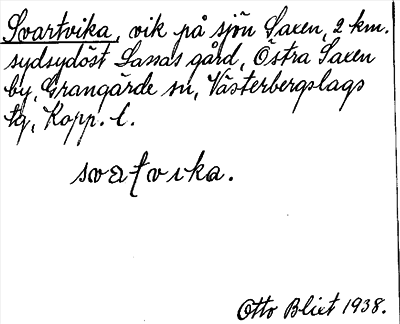 Svartvika, vik på sjön Saxen, 2 km.
sydsydöst Lassas gård, Östra Saxen
by, Grangärde sn, Västerbergslags
tg, Kopp. l.
svatvika.
Otto Blixt 1938.